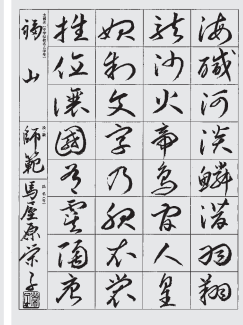 海鹹河淡鱗潜羽翔
龍師火帝鳥官人皇
始制文字乃服衣裳
推位讓國有虞陶唐
師範
馬屋原栄子